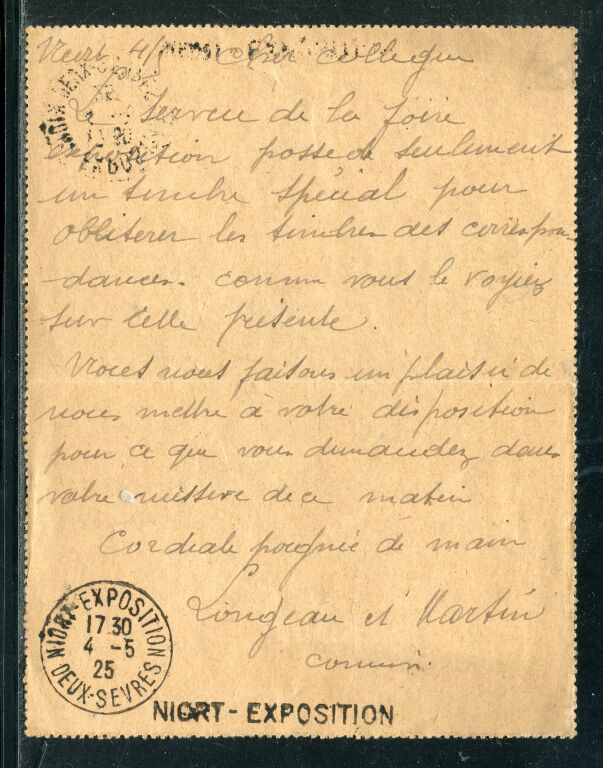 Niort 4/5 Cher collègue
Le Service de la foire
exposition possède seulement
un timbre spécial pour
obliterer les timbres des correspon-
-dances. comme vous le voyiez
sur celle présente.
Nous nous faisons un plaisir de
nous mettre à votre disposition
pour ce que vous demandez dans
votre missive de ce matin
Cordiale poignée de main
Longeau et Martin
commis.
NIORT-EXPOSITION
17 30
4 -5
25
DEUX-SEVRES
NIORT - EXPOSITION